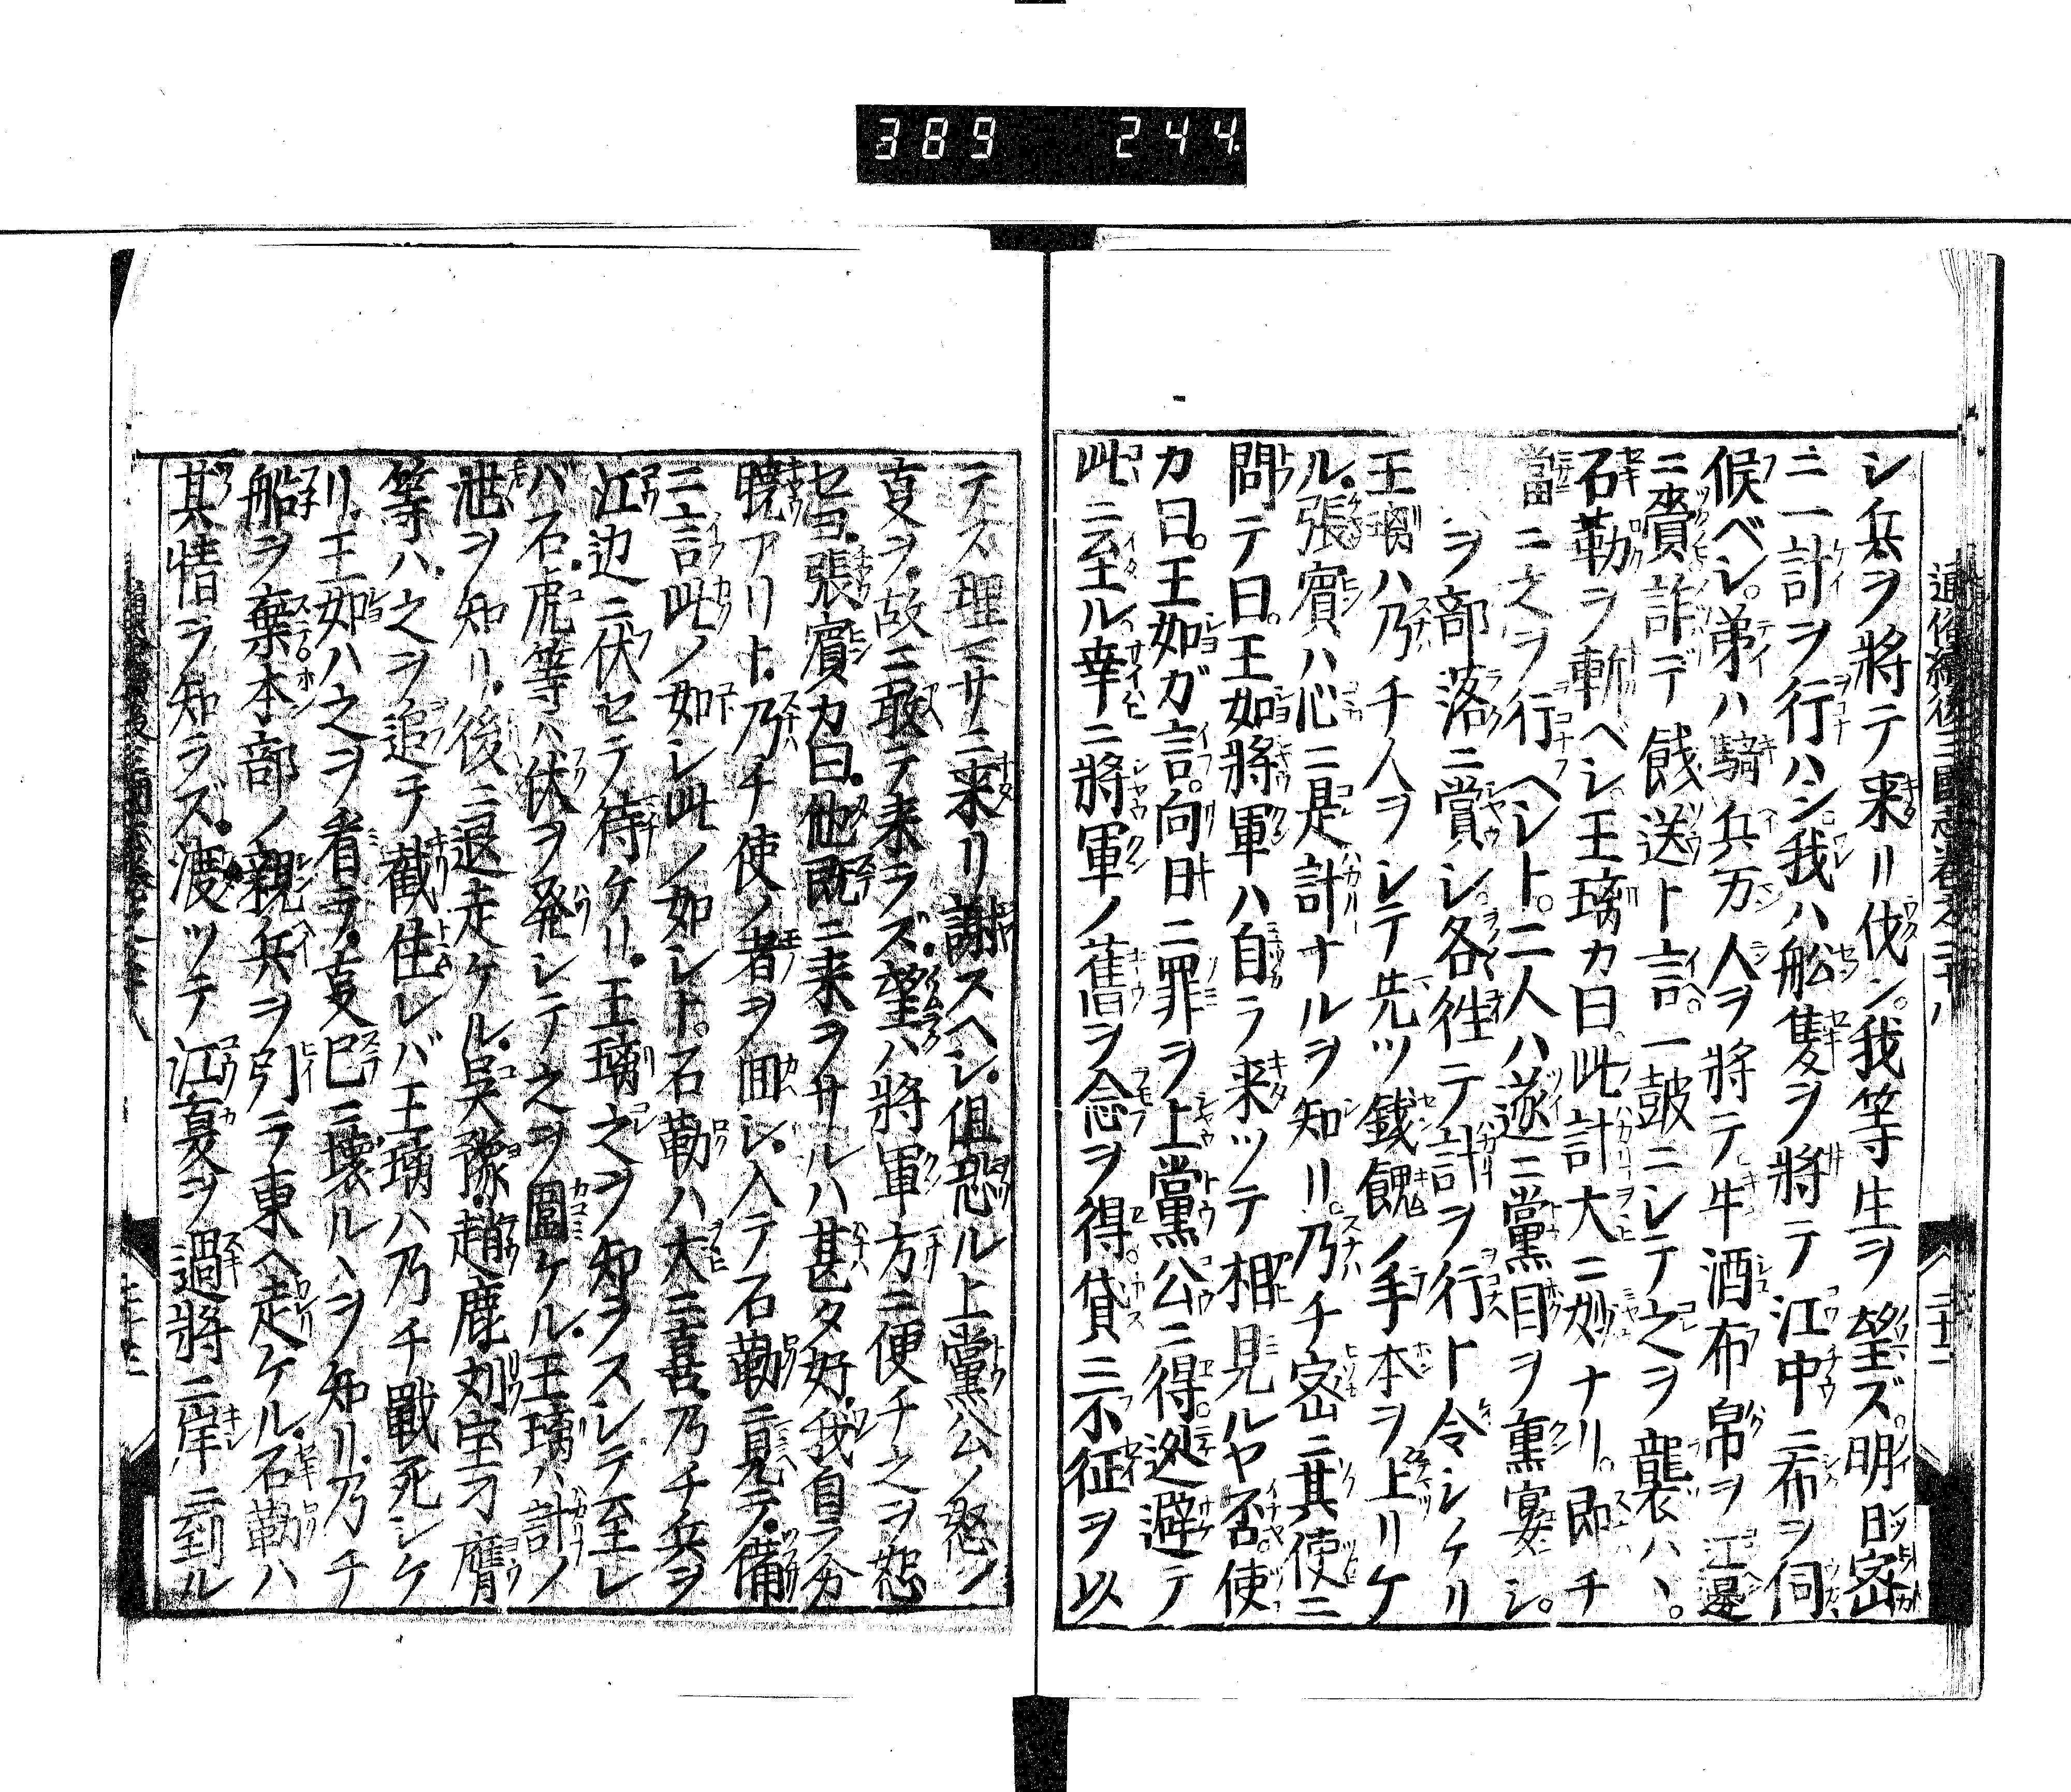 389 244.
通俗續後三國志卷之二十八
二十二
シ兵ヲ將テ来リ伐ン。我等生ヲ望ズ。明日密
ニ一計ヲ行ハン。我ハ船隻ヲ將テ江中ニ布ヲ伺
候ベシ。弟ハ騎兵万人ヲ將テ牛酒布帛ヲ江邊
ニ賷詐デ餞送ト言。一鼓ニシテ之ヲ襲ハヽ。
石勒ヲ斬ベシ。王璃カ曰。此計大ニ妙ナリ。即チ
當ニ之ヲ行ヘシト。二人ハ遂ニ黨目ヲ熏宴シ。
ヲ部落ニ賞シ。各往テ計ヲ行ト令シケリ
王璃ハ乃チ人ヲシテ先ツ錢餽ノ手本ヲ上リケ
ル。張賓ハ心ニ是計ナルヲ知リ。乃チ密ニ其使ニ
問テ曰。王如將軍ハ自ラ来ツテ相見ルヤ否。使
カ曰。王如ガ言。向日ニ罪ヲ上黨公ニ得。迯避テ
此ニ至ル。幸ニ將軍ノ舊ヲ念ヲ得。貸ニ不征ヲ以
テス理マサニ来リ謝スヘシ。俱恐ル上黨公ノ怒ノ
真ヲ。故ニ敢テ来ラズ。望ハ將軍方ニ便チ之ヲ恕
セヨ。張賓カ曰。他既ニ来ヲサルハ甚タ好。我自ラ分
曉アリト。乃チ使ノ者ヲ回シ。入テ石勒ニ見テ。備
ニ言此ノ如シ此ノ如シト。石勒ハ大ニ喜。乃チ兵ヲ
江辺ニ伏セテ待ケリ。王璃之ヲ知ヲスシテ至レ
バ石虎等ハ伏ヲ発シテ之ヲ圍ケル。王璃ハ計ノ
泄ヲ知リ。後ニ退走ケル。吴豫。趙鹿刘宝刁膺
等ハ。之ヲ追チ截住レバ王璃ハ乃チ戰死シケ
リ。王如ハ之ヲ看ラ。支巳ニ壊ルヽヲ知リ。乃チ
船ヲ棄本部ノ親兵ヲ引テ東ヘ走ケル。石勒ハ
其情ヲ知ラズ。渡ツテ江夏ヲ過將ニ岸ニ到ル